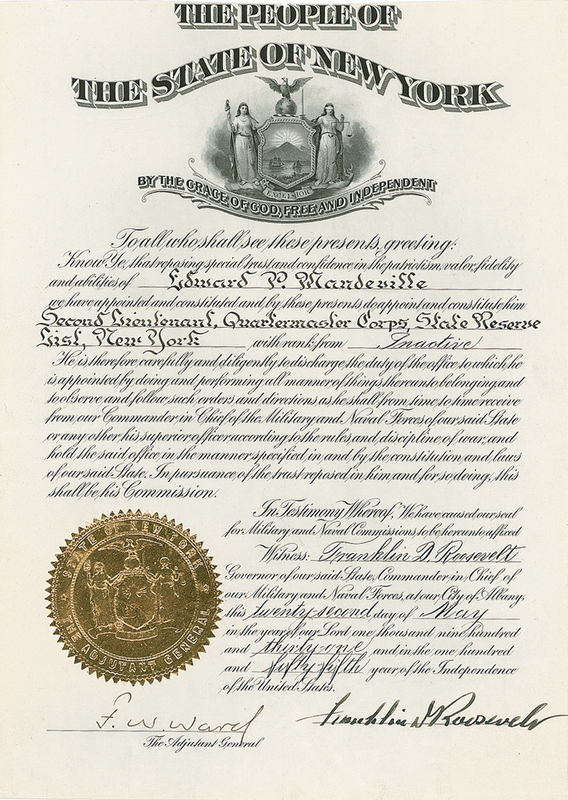 THE PEOPLE OF
THE STATE OF NEW YORK
EXCELSIOR
BY THE GRACE OF GOD, FREE AND INDEPENDENT
To all who shall see these presents, greeting:
Know Ye, that reposing special trust and confidence in the patriotism, valor, fidelity
and abilities of Edward P. Mandeville
we have appointed and constituted and by these presents do appoint and constitute him
Second Lieutenant, Quartermaster Corps, State Reserve
List, New York with rank from Inactive
He is therefore carefully and diligently to discharge the duty of the office to which he
is appointed by doing and performing all manner of things thereunto belonging and
to observe and follow such orders and directions as he shall from time to time receive
from our Commander in Chief of the Military and Naval Forces of our said State
or any other his superior officer according to the rules and discipline of war, and
hold the said office in the manner specified in and by the constitution and laws
of our said State. In pursuance of the trust reposed in him, and for so doing, this
shall be his Commission.
In Testimony Whereof, We have caused our seal
for Military and Naval Commissions, to be hereunto affixed
Witness: Franklin D. Roosevelt
Governor of our said State, Commander in Chief of
our Military and Naval Forces, at our City of Albany,
this twenty second day of May
in the year of our Lord one thousand nine hundred
and thirty one and in the one hundred
and fifty fifth year of the Independence
of the United States.
STATE OF NEW YORK
THE ADJUTANT GENERAL
F. W. Ward
The Adjutant General
Franklin D Roosevelt